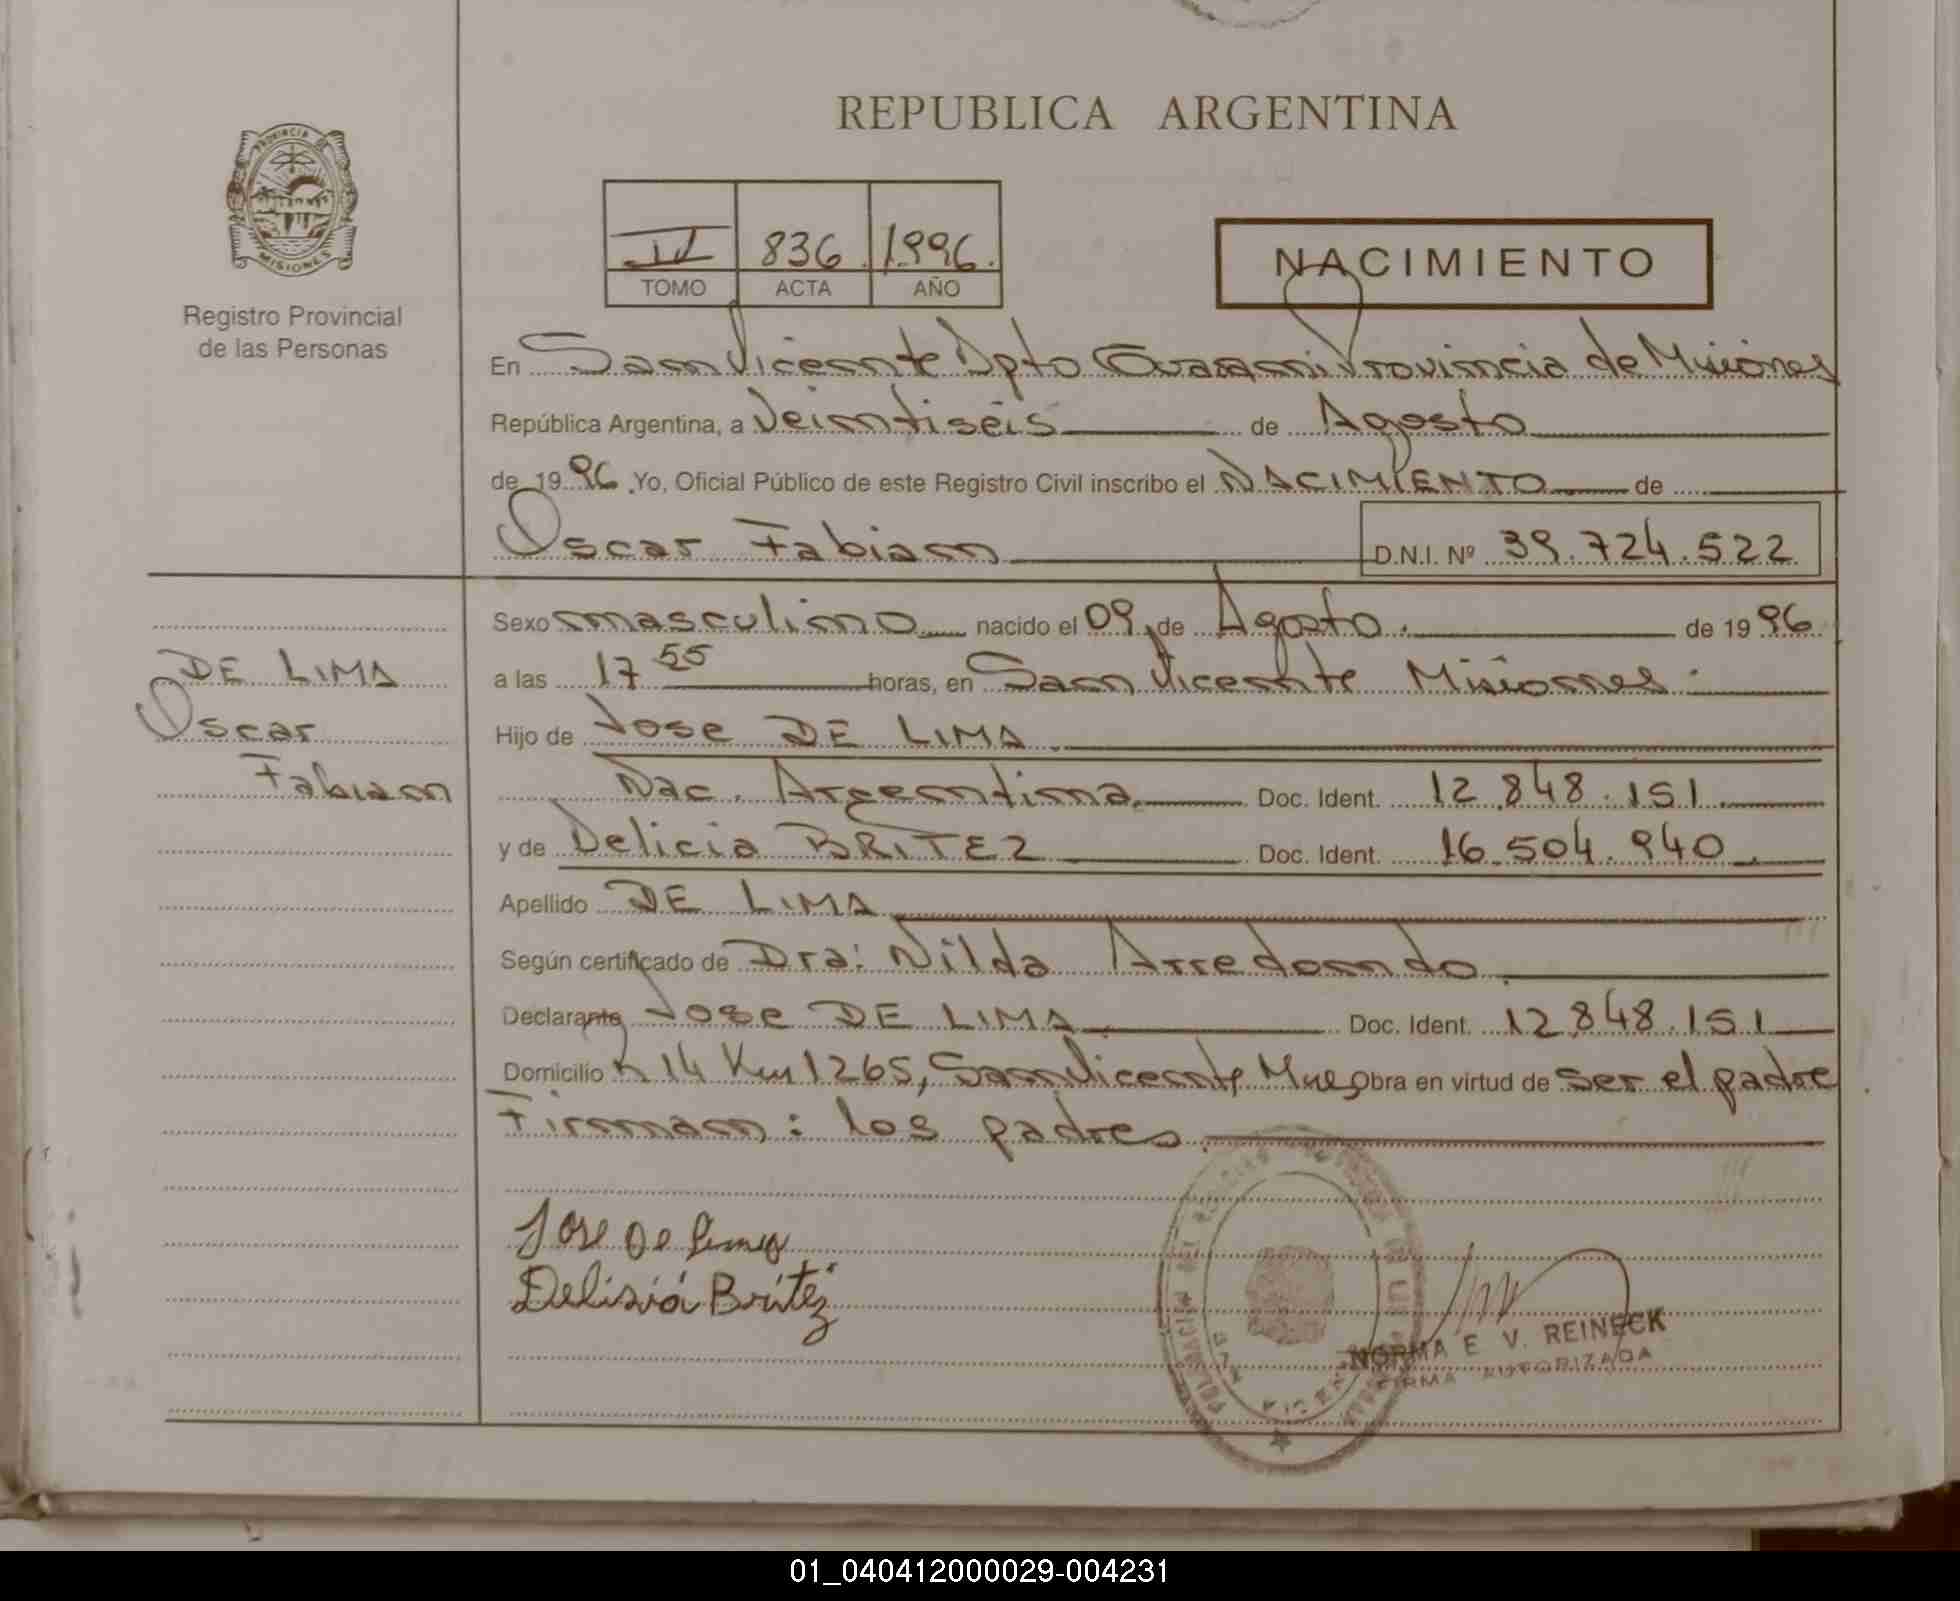 REPUBLICA ARGENTINA
PROVINCIA DE
MISIONES
Registro Provincial
de las Personas
II 836 1996.
TOMO ACTA AÑO
NACIMIENTO
En San Vicente Dpto Guarani Provincia de Misiones
República Argentina, a Veintiséis de Agosto
de 1996. Yo, Oficial Público de este Registro Civil inscribo el NACIMIENTO de
Oscar Fabian D.N.I. Nº 39.724.522
Sexo masculino nacido el 09 de Agosto. de 1996.
a las 17 55 horas, en San Vicente Misiones.
DE LIMA
Oscar
Fabian
Hijo de Jose DE LIMA.
Nac. Argentina. Doc. Ident. 12.848.151.
y de Delicia BRITEZ Doc. Ident. 16.504.940.
Apellido DE LIMA
Según certificado de Dra: Nilda Arredondo.
Declarante Jose DE LIMA Doc. Ident. 12.848.151
Domicilio 14 Km 1265, San Vicente, Mnes obra en virtud de ser el padre
Firman: los padres.
Jose De Lima
Delisiá Britéz
NORMA E. V. REINECK
FIRMA AUTORIZADA
01_040412000029-004231